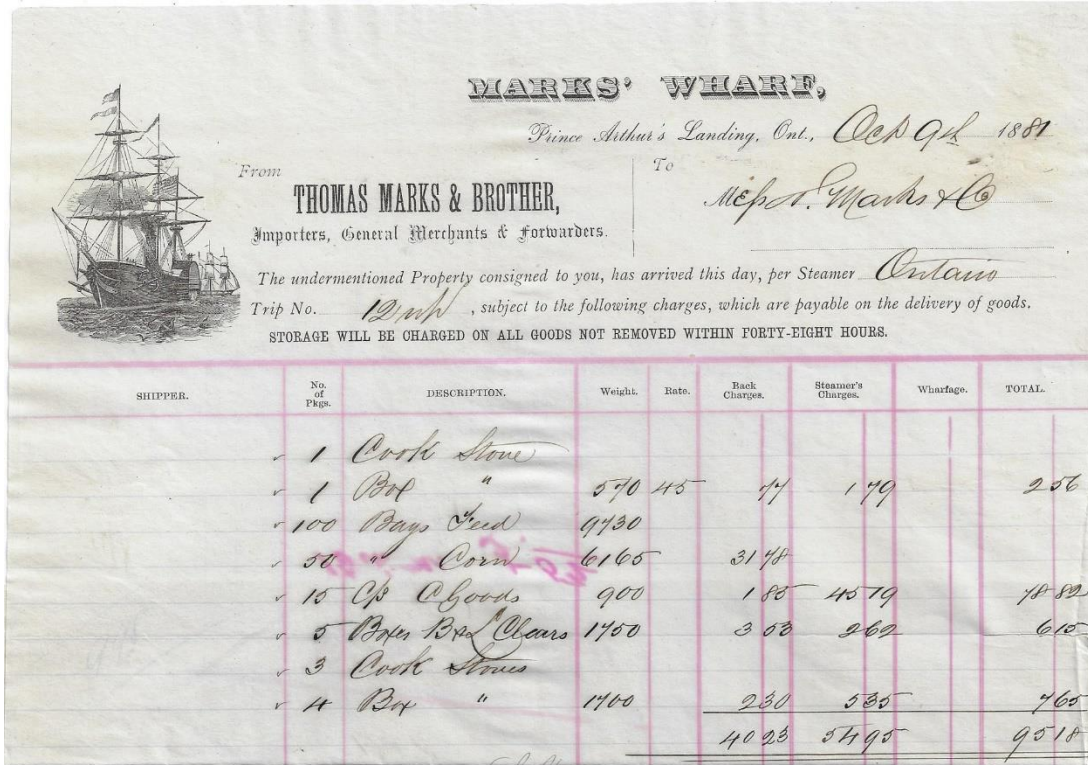 MARKS' WHARF,
Prince Arthur's Landing, Ont., Oct 9th 1881
From
To
THOMAS MARKS & BROTHER,
Importers, General Merchants & Forwarders.
Marks & Co
The undermentioned Property consigned to you, has arrived this day, per Steamer Ontario
Trip No. 12 up, subject to the following charges, which are payable on the delivery of goods.
STORAGE WILL BE CHARGED ON ALL GOODS NOT REMOVED WITHIN FORTY-EIGHT HOURS.
SHIPPER. No. of Pkgs. DESCRIPTION. Weight. Rate. Back Charges. Steamer's Charges. Wharfage. TOTAL.
1 Cook Stove
1 Box " 570 45 77 1 79 2 56
100 Bags Feed 9730
50 " Corn 6165 31 78
15 C/s C Goods 900 1 85 45 19 78 82
5 Boxes B&L Clears 1750 3 53 2 62 6 15
3 Cook Stoves
4 Box " 1700 2 30 5 35 7 65
40 23 54 95 95 18